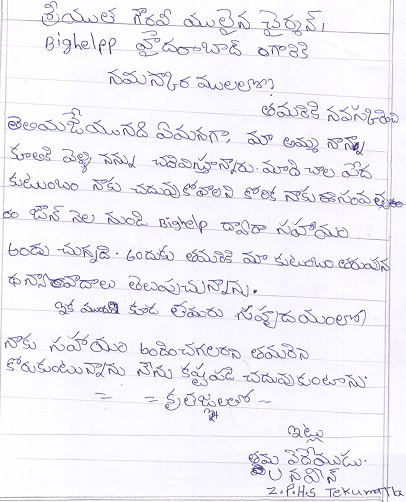 శ్రీయుత గౌరవనీయులైన చైర్మన్,
Bighelpp హైదరాబాద్ గారికి
నమస్కారములలతో?
తమరికి నమస్కరించి
తెలియజేయునది ఏమనగా, మా అమ్మ నాన్న
కూలికి వెళ్ళి నన్ను చదివిస్తున్నారు. మాది చాల పేద
కుటుంబం నాకు చదువుకోవాలని కోరిక నాకు ఈ సంవత్సరం
జూన్ నెల నుండి Bighelp ద్వారా సహాయం
అందుచున్నది. అందుకు తమరికి మా కుటుంబం తరుపున
ధన్యావాదాలు తెలుపుచున్నాను.
ఇక ముందు కూడ తమరు సహృదయంతో
నాకు సహాయం అందించగలరని తమరిని
కోరుకుంటున్నాను నేను కష్టపడి చదువుకుంటాను
= = కృతజ్ఞతలతో =
ఇట్లు
తమ విధేయుడు.
నవీన్
Z.P.H.S Tekumatla